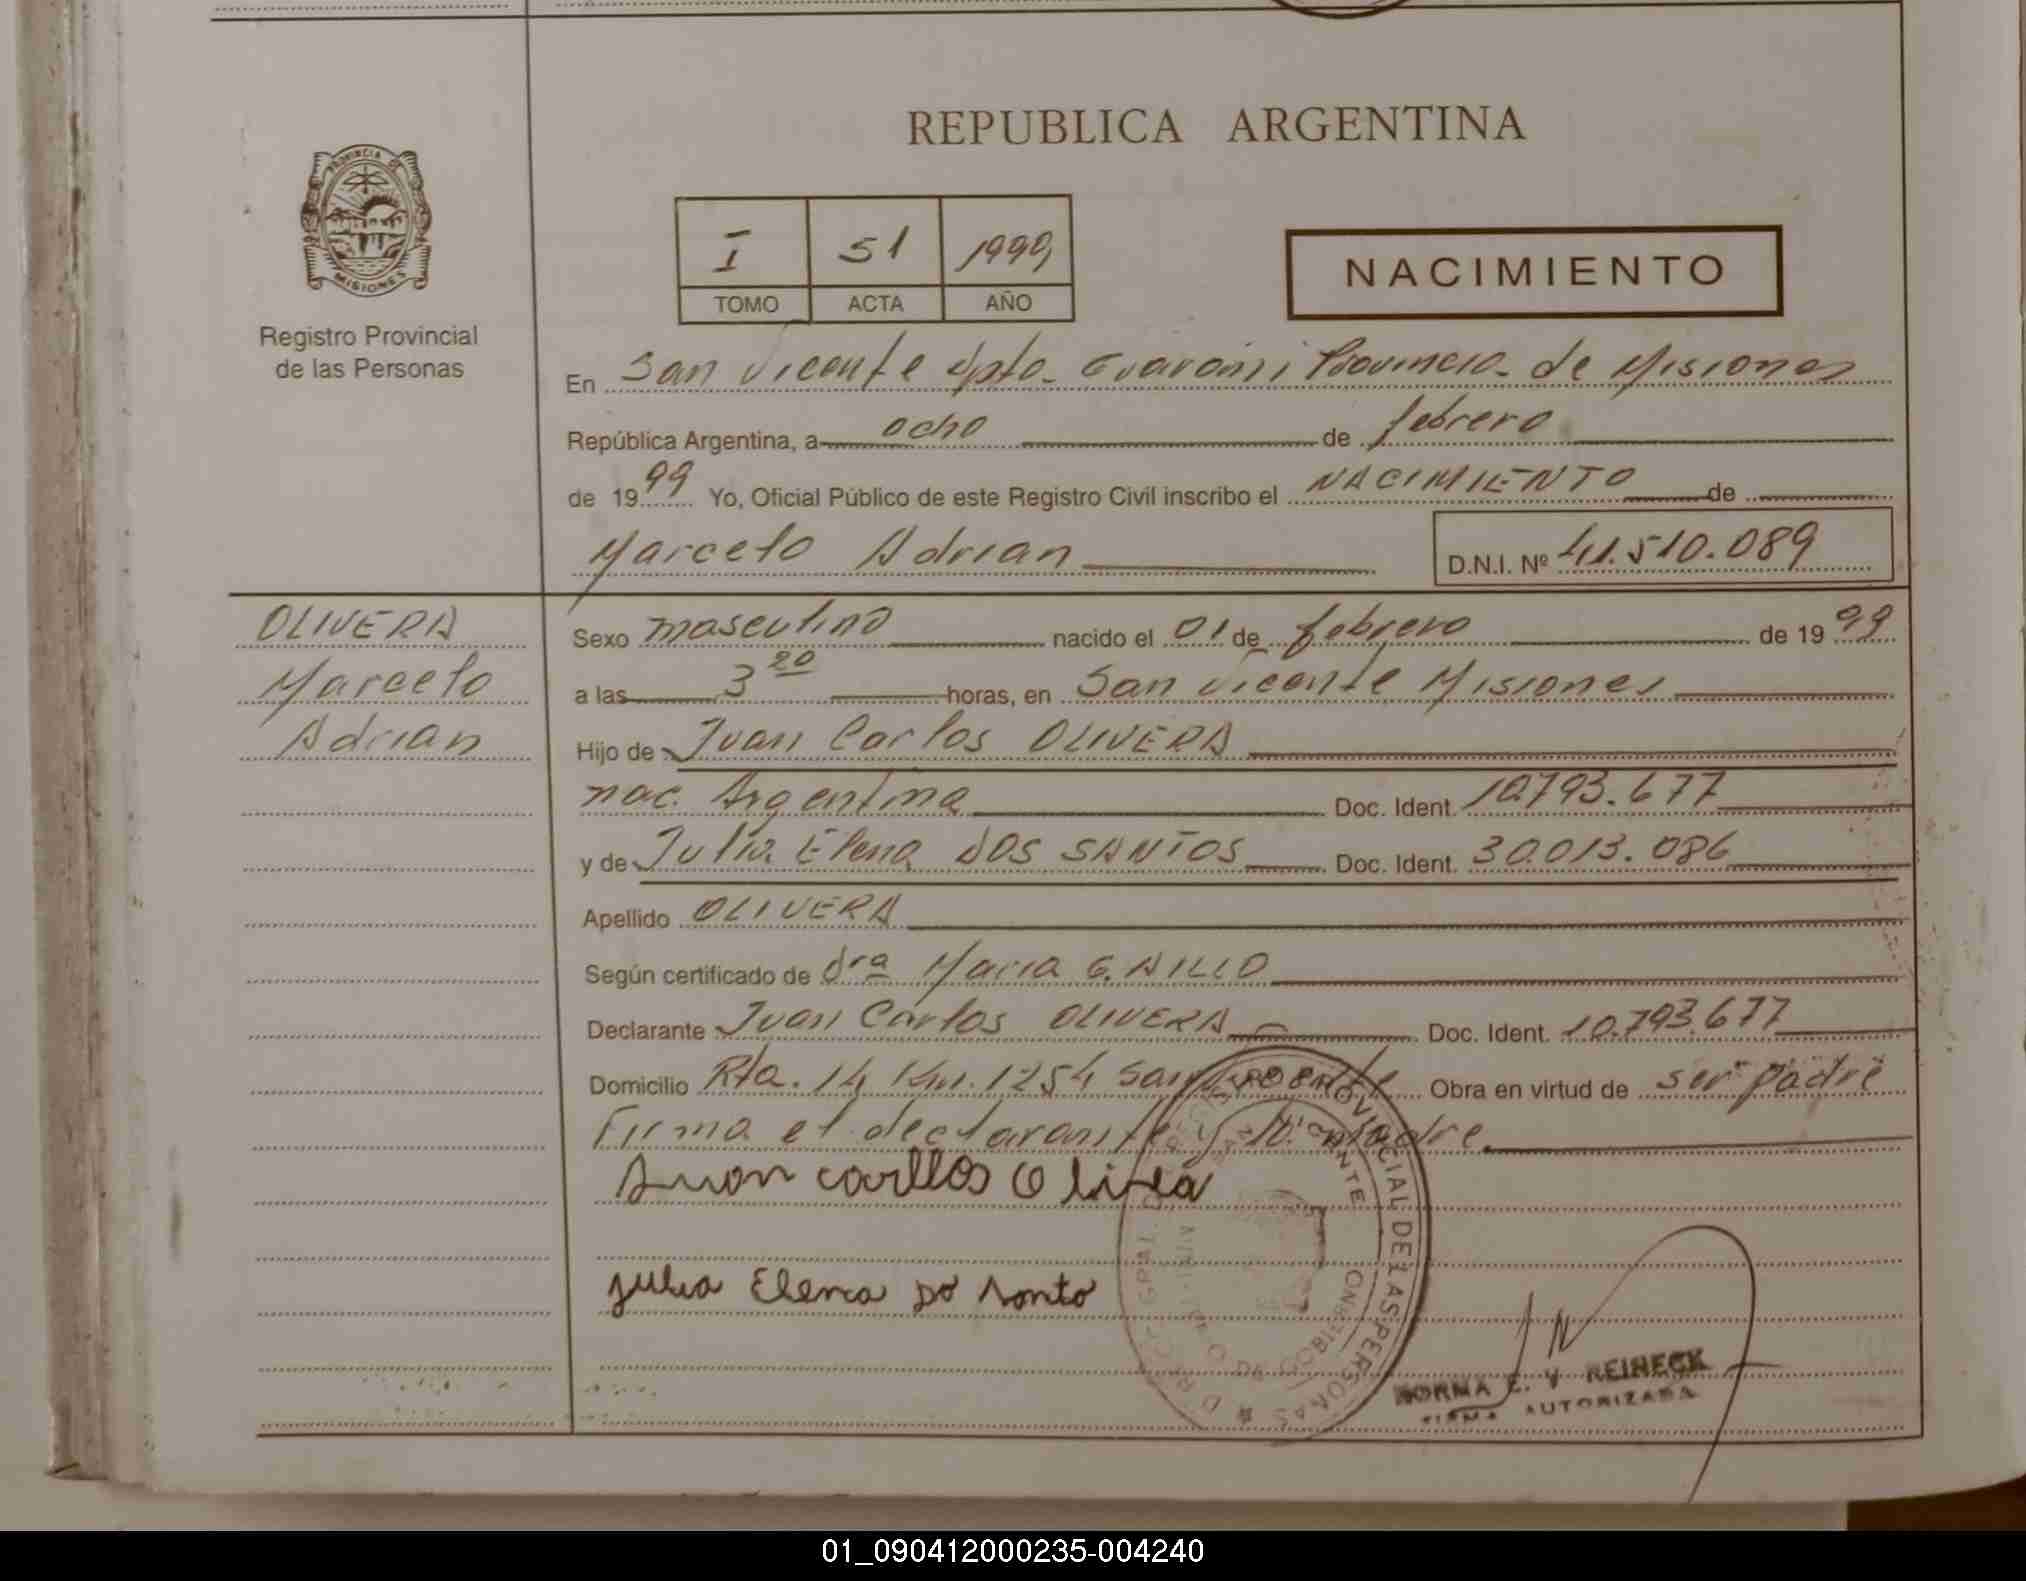 REPUBLICA ARGENTINA
PROVINCIA DE
MISIONES
Registro Provincial
de las Personas
I 51 1999
TOMO ACTA AÑO
NACIMIENTO
En San Vicente Dpto. Guaraní Provincia de Misiones
República Argentina, a ocho de febrero
de 1999 Yo, Oficial Público de este Registro Civil inscribo el NACIMIENTO de
Marcelo Adrian D.N.I. Nº 41.510.089
OLIVERA
Marcelo
Adrian
Sexo masculino nacido el 01 de febrero de 1999
a las 3 20 horas, en San Vicente Misiones
Hijo de Juan Carlos OLIVERA
nac. Argentina Doc. Ident. 10.793.677
y de Julia Elena DOS SANTOS Doc. Ident. 30.013.086
Apellido OLIVERA
Según certificado de dra Maria G.
Declarante Juan Carlos OLIVERA Doc. Ident. 10.793.677
Domicilio Rta. 14 Km. 1254 San Vicente Obra en virtud de ser padre
Firma el declarante y la madre
Juan Carllos
Julia Elena Do Santo
PROVINCIAL DE LAS PERSONAS
GOBIERNO
NORMA E. V. REINECK
FIRMA AUTORIZADA
01_090412000235-004240